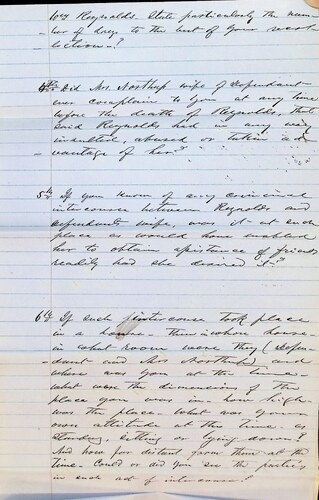 Wm Reynolds. State particularly the num-
ber of days to the best of your recol-
lection?
4th Did Mrs Northup wife of Defendant
ever complain to you at any time
before the death of Reynolds, that
said Reynolds had in any way
insulted, abused or taken ad-
vantage of her?
5th If you know of any criminal
intercourse between Reynolds and
defendants wife, was it at such
place as would have enabled
her to obtain assistance of friends
readily had she desired it?
6th If such intercourse took place
in a house - then in whose house -
in what room were they (Defen
dant and Mrs Northup) and
where was you at the time -
what were the dimensions of the
place you was in - how high
was the place - what was your
own attitude at the time - as
standing, sitting or lying down?
And how far distant from them at the
time. Could or did you see the parties
in such act of intercourse?